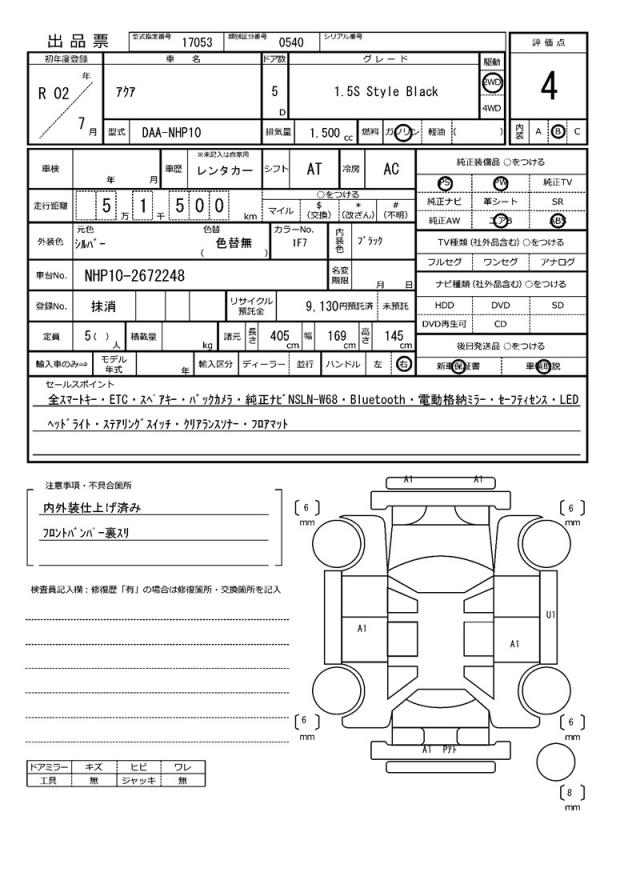 出品票 型式指定番号 17053 類別区分番号 0540 シリアル番号
評価点
4
初年度登録 車名 ドア数 グレード 駆動
R 02 年 7 月 アクア 5 D 1.5S Style Black 2WD 4WD
型式 DAA-NHP10 排気量 1,500 cc 燃料 ガソリン 軽油 ( ) 内装 A B C
車検 年 月 車歴 ※未記入は自家用 レンタカー シフト AT 冷房 AC
走行距離 5 万 1 千 5 0 0 km ○をつける マイル $ (交換) * (改ざん) # (不明)
外装色 元色 シルバー 色替 色替無 ( ) カラーNo. 1F7 内装色 ブラック
車台No. NHP10-2672248 名変期限 月 日
登録No. 抹消 リサイクル預託金 9,130円預託済 未預託
定員 5( ) 人 積載量 kg 諸元 長さ 405 cm 幅 169 cm 高さ 145 cm
輸入車のみ⇒ モデル年式 年 輸入区分 ディーラー 並行 ハンドル 左 右
純正装備品 ○をつける
PS PW 純正TV
純正ナビ 革シート SR
純正AW エアB ABS
TV種類 (社外品含む) ○をつける
フルセグ ワンセグ アナログ
ナビ種類 (社外品含む) ○をつける
HDD DVD SD
DVD再生可 CD
後日発送品 ○をつける
新車保証書 車輌取説
セールスポイント
全スマートキー・ETC・スペアキー・バックカメラ・純正ナビNSLN-W68・Bluetooth・電動格納ミラー・セーフティセンス・LED
ヘッドライト・ステアリングスイッチ・クリアランスソナー・フロアマット
注意事項・不具合箇所
内外装仕上げ済み
フロントバンパー裏スリ
検査員記入欄：修復歴「有」の場合は修復箇所・交換箇所を記入
ドアミラー キズ ヒビ ワレ
工具 無 ジャッキ 無
A1 A1
[ 6 ] mm [ 6 ] mm
A1 A1 U1
[ 6 ] mm [ 6 ] mm
A1 Pアト
[ 8 ] mm